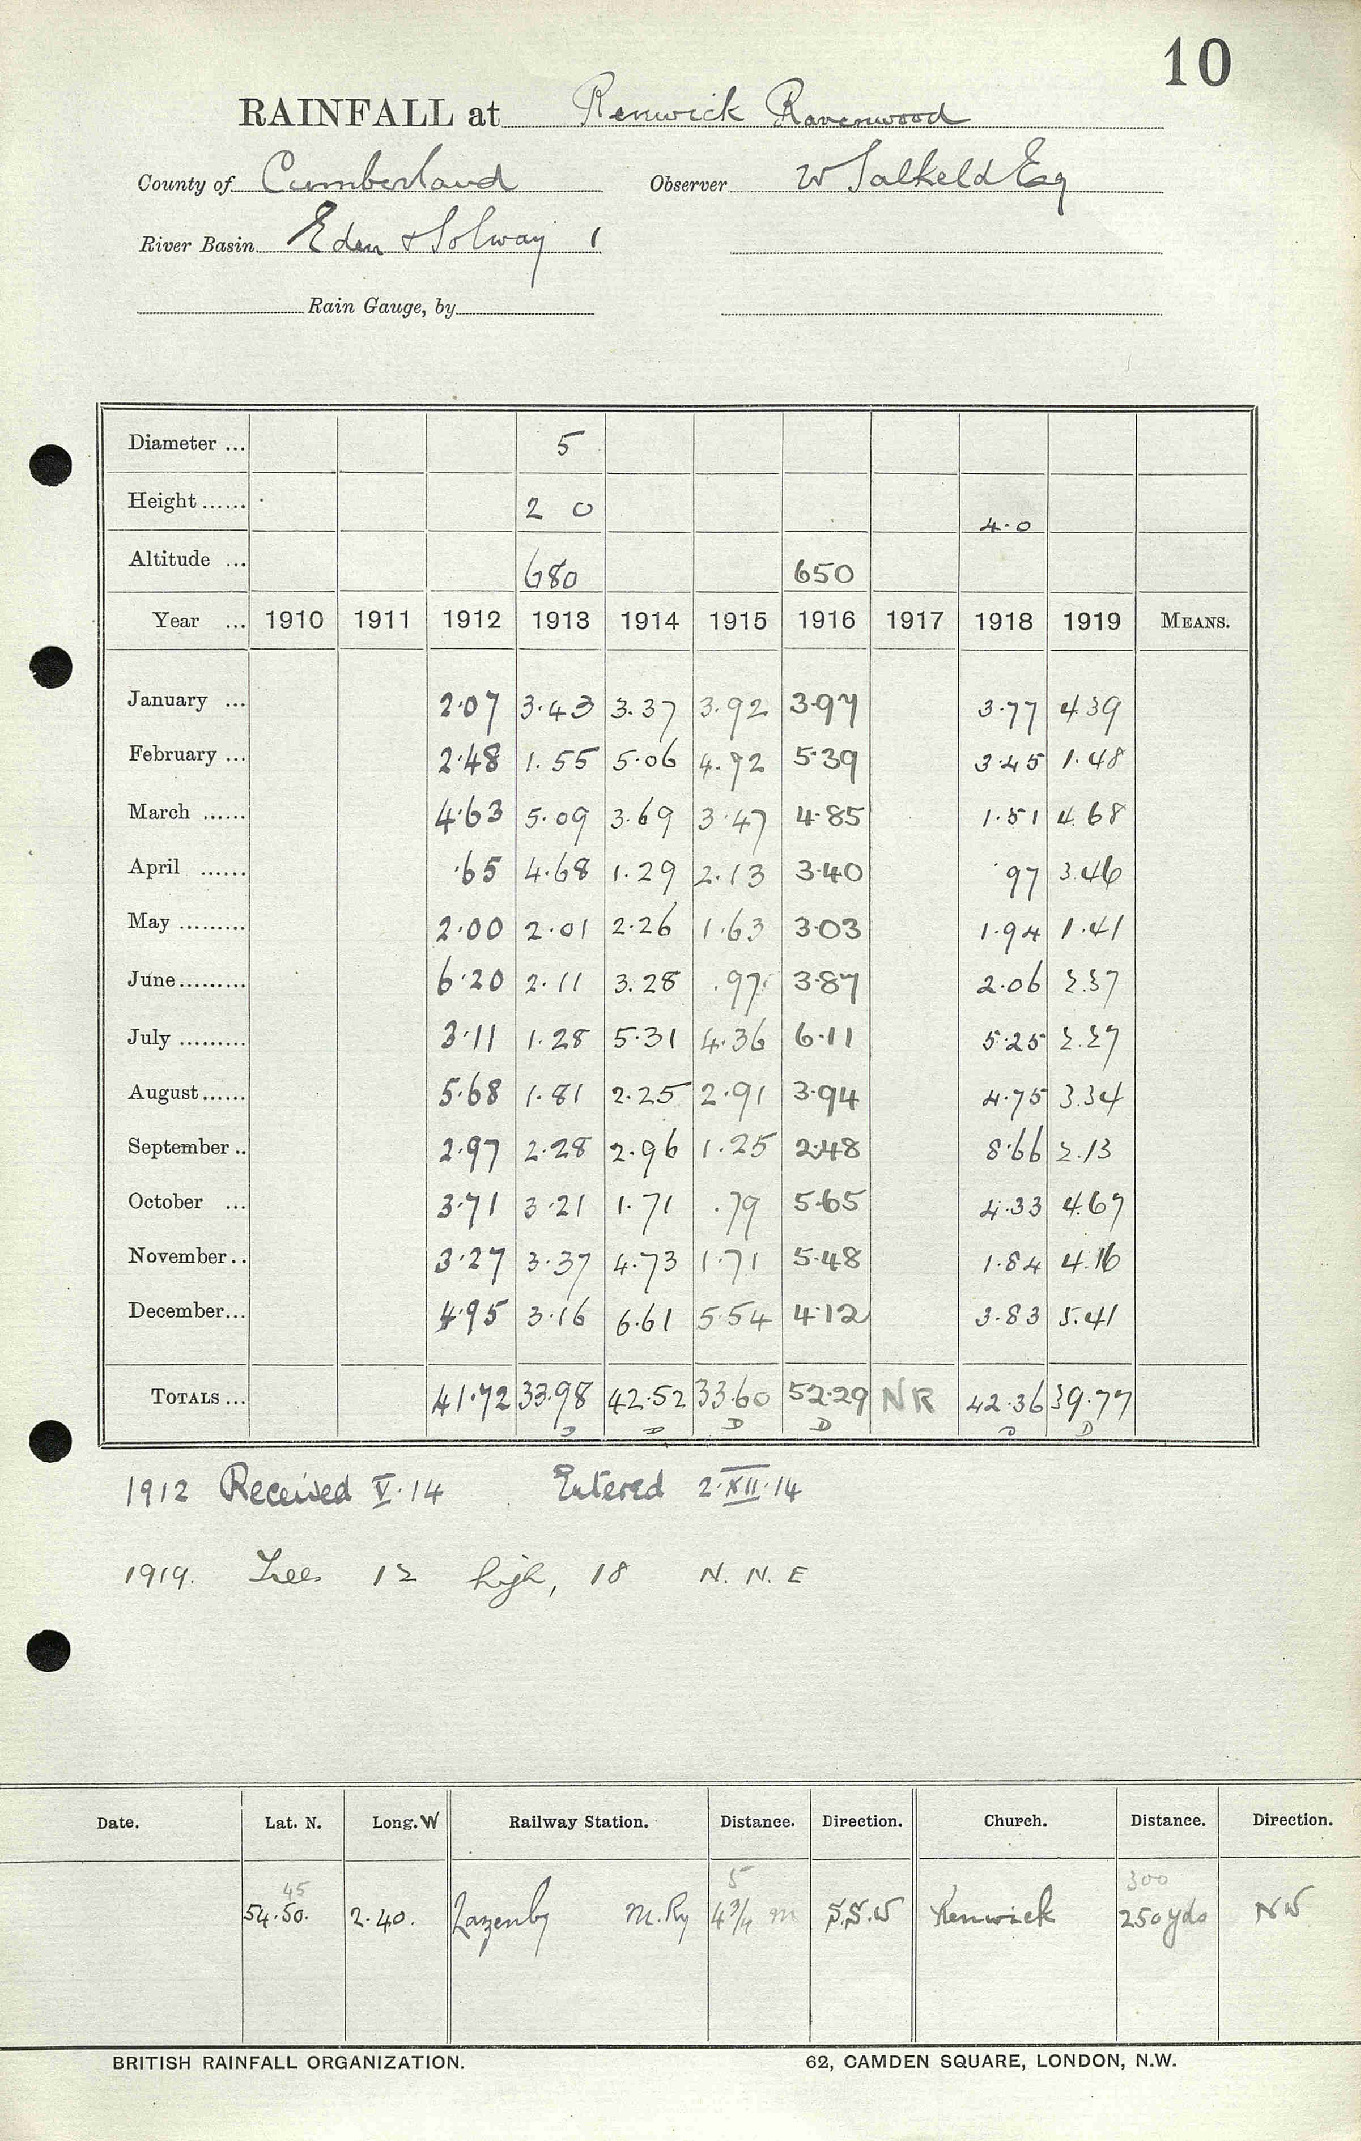 10
RAINFALL at Renwick Ravenwood
County of Cumberland Observer W Salkeld Esq
River Basin Eden & Solway 1
Rain Gauge, by
Diameter ... 5
Height ...... 2 0 4.0
Altitude ... 680 650
Year ... 1910 1911 1912 1913 1914 1915 1916 1917 1918 1919 MEANS.
January ... 2.07 3.43 3.37 3.92 3.97 3.77 4.39
February ... 2.48 1.55 5.06 4.92 5.39 3.45 1.48
March ...... 4.63 5.09 3.69 3.47 4.85 1.51 4.68
April ...... .65 4.68 1.29 2.13 3.40 .97 3.46
May ......... 2.00 2.01 2.26 1.63 3.03 1.94 1.41
June ......... 6.20 2.11 3.28 .97 3.87 2.06 2.37
July ......... 3.11 1.28 5.31 4.36 6.11 5.25 2.27
August ...... 5.68 1.81 2.25 2.91 3.94 4.75 3.34
September .. 2.97 2.28 2.96 1.25 2.48 8.66 2.13
October ... 3.71 3.21 1.71 .79 5.65 4.33 4.67
November .. 3.27 3.37 4.73 1.71 5.48 1.84 4.16
December ... 4.95 3.16 6.61 5.54 4.12 3.83 5.41
TOTALS ... 41.72 33.98 42.52 33.60 52.29 NR 42.36 39.77
D D D D D D
1912 Received V.14 Entered 2.XII.14
1919. Trees 12 high, 18 N. N. E
Date. Lat. N. Long. W Railway Station. Distance. Direction. Church. Distance. Direction.
45 5 300
54.50. 2.40. Lazenby M. Ry 4¾ m S.S.W Renwick 250 yds NW
BRITISH RAINFALL ORGANIZATION. 62, CAMDEN SQUARE, LONDON, N.W.